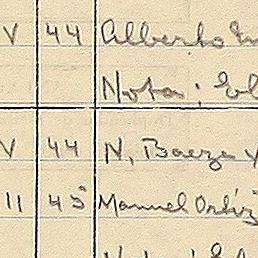 V 44 Alberto
Nota: El
V 44 N. Baeza y
11 45 Manuel Ortiz
Nota: El